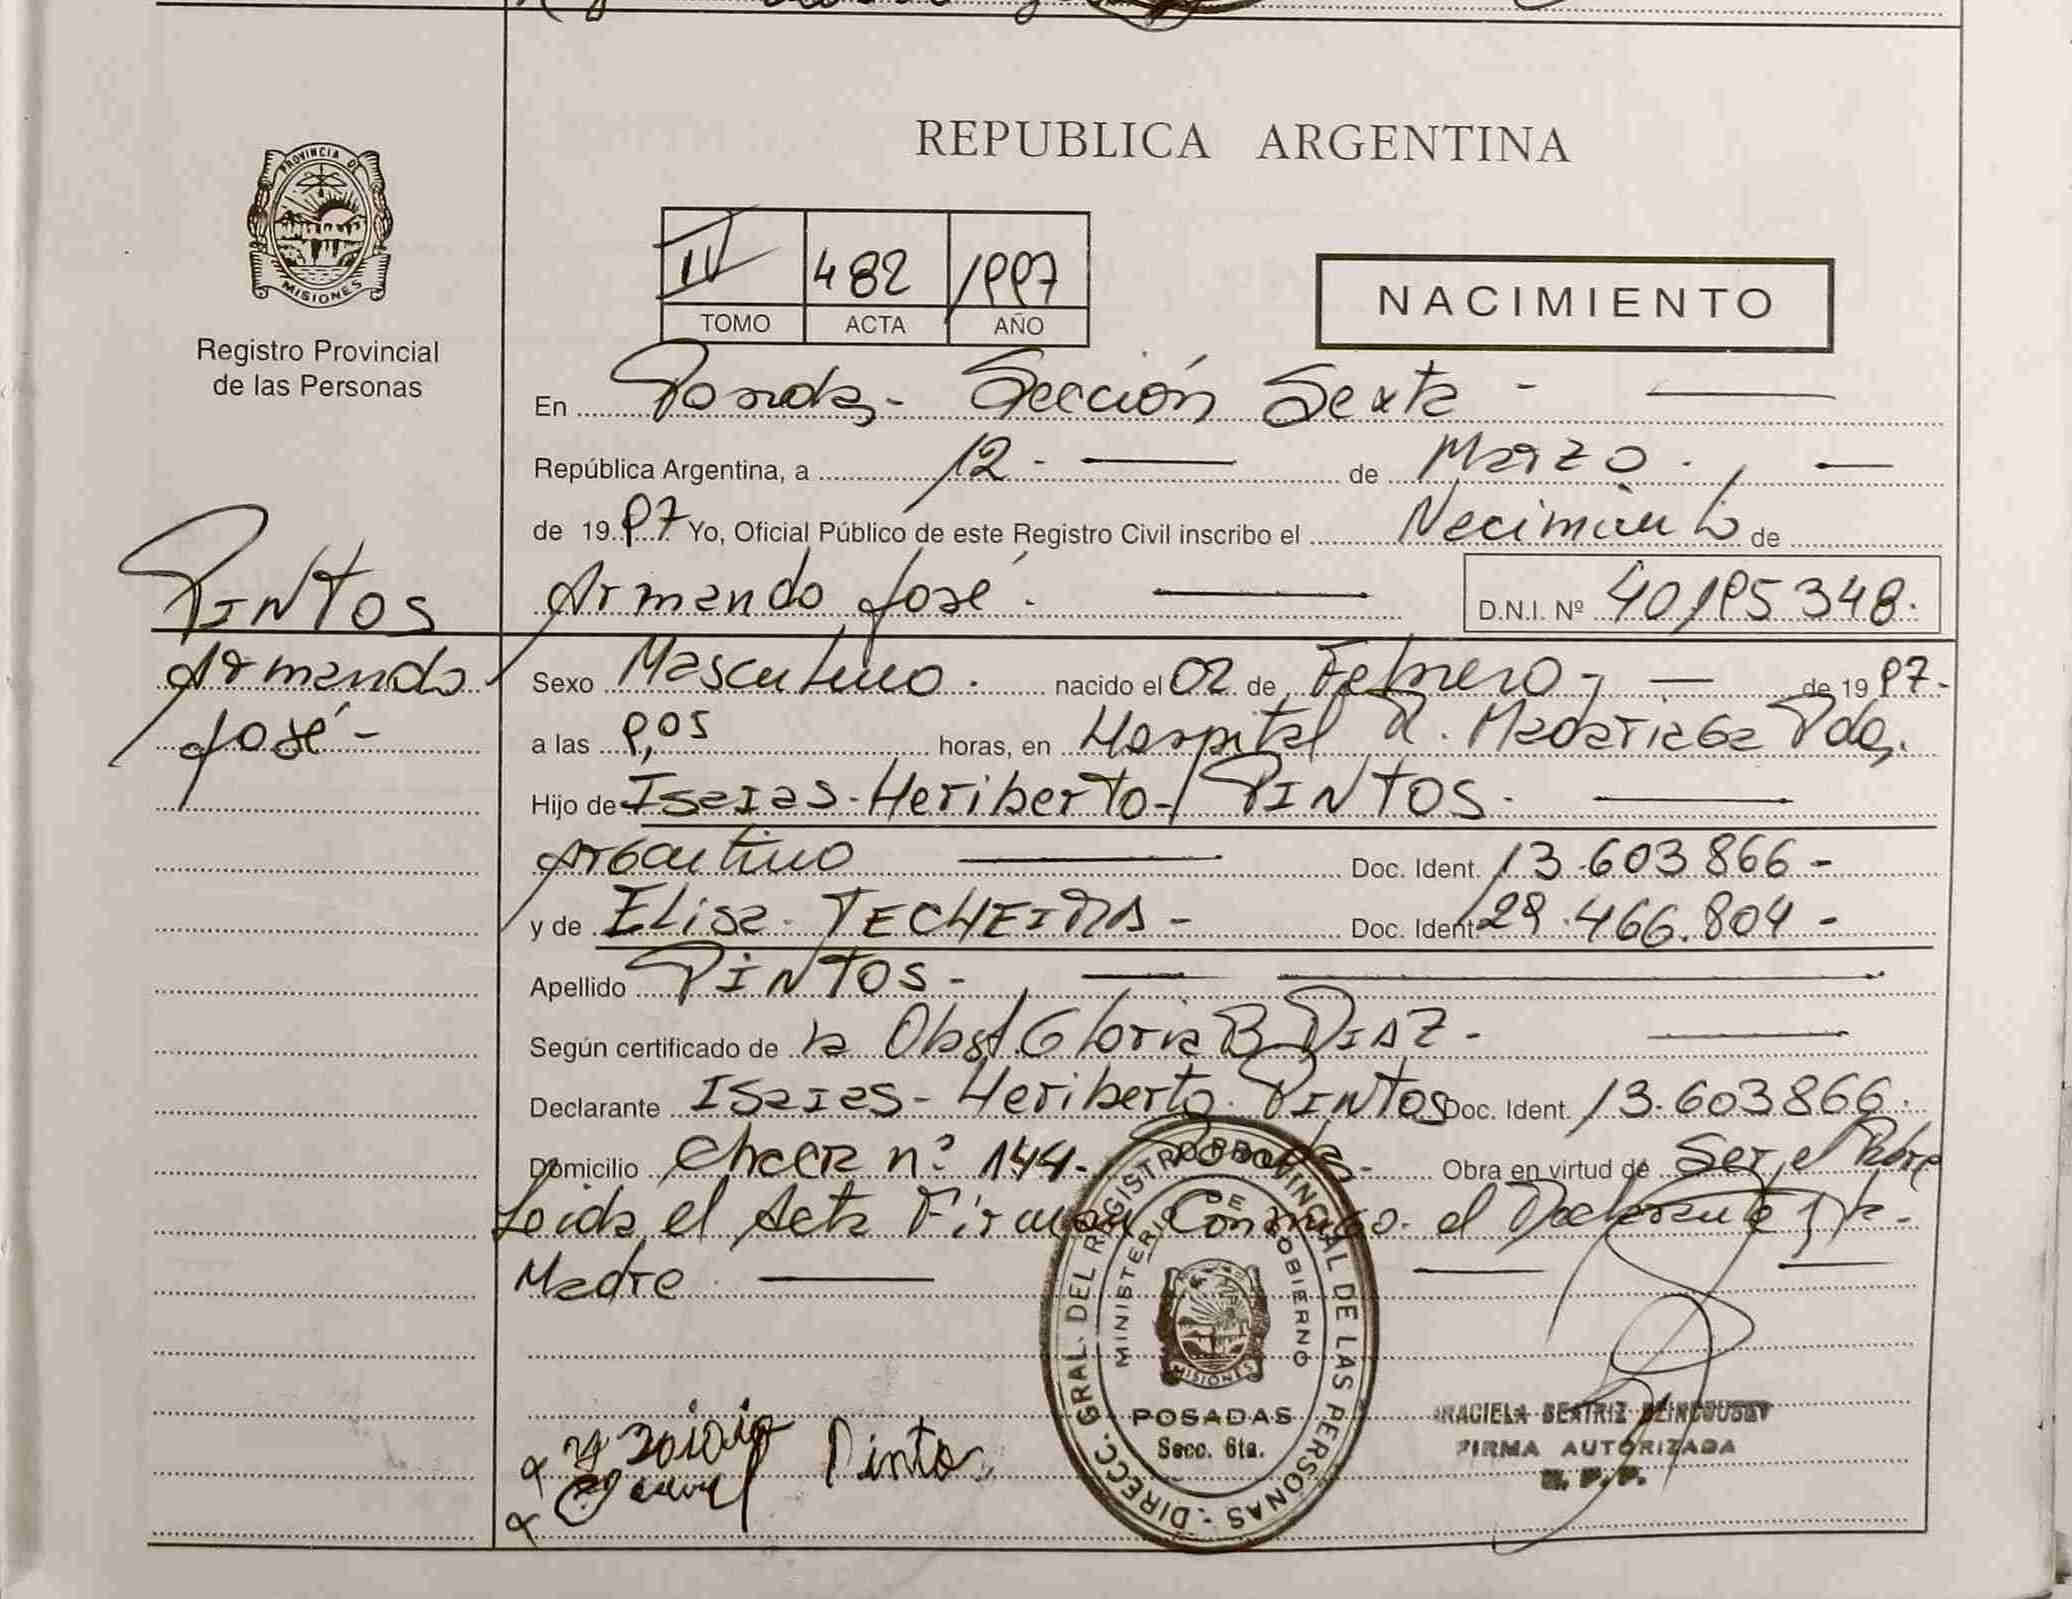 REPUBLICA ARGENTINA
PROVINCIA DE
MISIONES
Registro Provincial
de las Personas
IV 482 1997
TOMO ACTA AÑO
NACIMIENTO
En Posadas - Sección Sexta -
República Argentina, a 12 - de Marzo.
de 1997 Yo, Oficial Público de este Registro Civil inscribo el Nacimiento de
Armando José. D.N.I. Nº 40195348.
PINTOS
Armando
José -
Sexo Masculino. nacido el 02 de Febrero - de 1997 -
a las 9,05 horas, en Hospital R. Madariaga Pdas.
Hijo de Isaias - Heriberto - PINTOS -
Argentino Doc. Ident. 13.603.866 -
y de Elisa - TECHEIRA - Doc. Ident. 29.466.804 -
Apellido PINTOS -
Según certificado de la Obst. Gloria B DIAZ -
Declarante Isaias - Heriberto PINTOS Doc. Ident. 13.603.866.
Domicilio Chacra nº 144 - Posadas - Obra en virtud de Ser el Padre
Leida el Acta Firman Conmigo el Declarante y la
Madre
DIRECC. GRAL. DEL REGISTRO PROVINCIAL DE LAS PERSONAS
MINISTERIO DE GOBIERNO
MISIONES
POSADAS
Secc. 6ta.
GRACIELA BEATRIZ
FIRMA AUTORIZADA
R. P. P.
Pinto